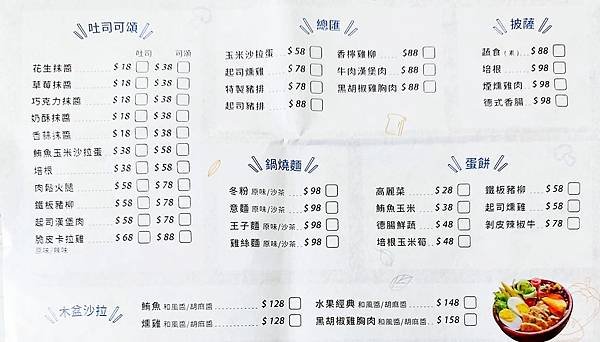 吐司可頌
吐司 可頌
花生抹醬 $18 $38
草莓抹醬 $18 $38
巧克力抹醬 $18 $38
奶酥抹醬 $18 $38
香蒜抹醬 $18 $38
鮪魚玉米沙拉蛋 $38 $58
培根 $38 $58
肉鬆火腿 $58 $78
鐵板豬柳 $58 $78
起司漢堡肉 $58 $78
脆皮卡拉雞 $68 $88
原味/辣味
總匯
玉米沙拉蛋 $58
起司燻雞 $78
特製豬排 $78
起司豬排 $88
香檸雞柳 $88
牛肉漢堡肉 $88
黑胡椒雞胸肉 $88
披薩
蔬食(素) $88
培根 $98
煙燻雞肉 $98
德式香腸 $98
鍋燒麵
冬粉 原味/沙茶 $98
意麵 原味/沙茶 $98
王子麵 原味/沙茶 $98
雞絲麵 原味/沙茶 $98
蛋餅
高麗菜 $28
鮪魚玉米 $38
德腸鮮蔬 $48
培根玉米筍 $48
鐵板豬柳 $58
起司燻雞 $58
剝皮辣椒牛 $78
木盆沙拉
鮪魚 和風醬/胡麻醬 $128
燻雞 和風醬/胡麻醬 $128
水果經典 和風醬/胡麻醬 $148
黑胡椒雞胸肉 和風醬/胡麻醬 $158